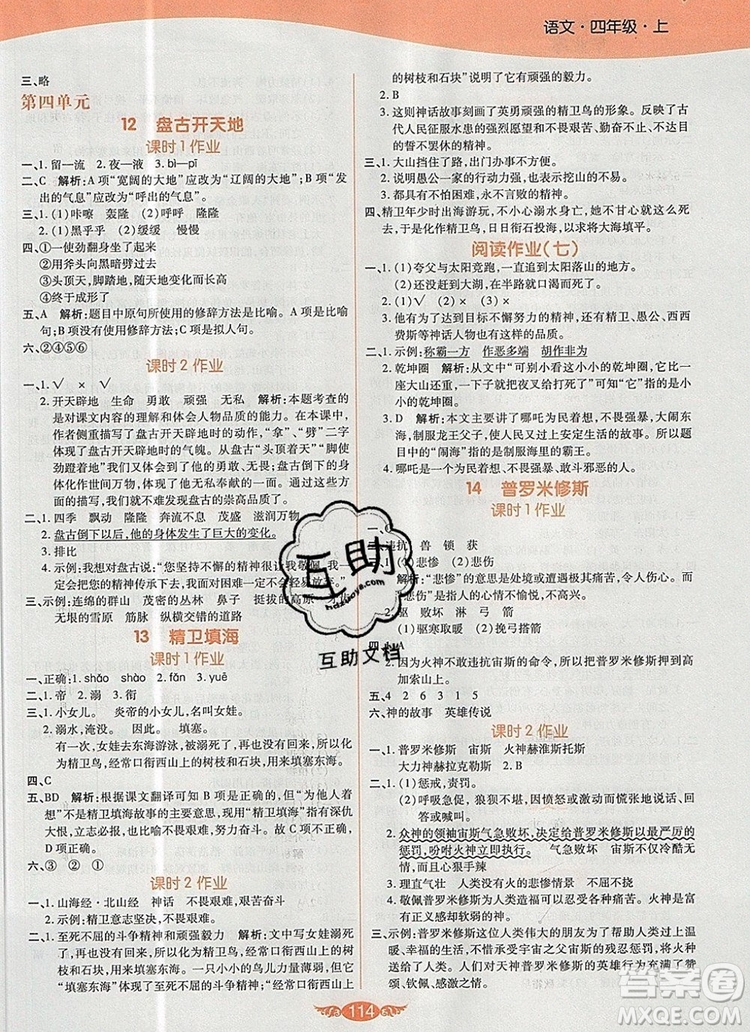 语文·四年级·上
三、略
第四单元
12 盘古开天地
课时1作业
一、1. 留—流 2. 夜—液 3. bì—pī
二、C 解析:A项“宽阔的大地”应改为“辽阔的大地”;B项“发出的气息”应改为“呼出的气息”。
三、1. (1)咔嚓 轰隆 (2)呼呼 隆隆
2. (1)黑乎乎 (2)缓缓 慢慢
四、①一使劲翻身坐了起来
②用斧头向黑暗劈过去
③头顶天,脚踏地
④终于成形了
五、A 解析:题目中原句所使用的修辞方法是比喻。A项也使用了比喻的修辞方法;B项是拟人句。
六、②④⑤⑥
课时2作业
一、1. √ × × √
2. 开天辟地 生命 勇敢 顽强 无私 解析:本题考查的
是对课文内容的理解和体会人物品质的能力。在本课中,
作者侧重描写盘古开天辟地时的动作,“拿”、“劈”二字
体现了盘古开天辟地时的气魄。盘古“头顶着天”“脚使
劲蹬着地”让我们体会到他勇敢、顽强的品质。盘古的身
体化作世间万物,使我们体会到他无私奉献、不畏艰难、
不怕牺牲、创造世界的崇高品质。
二、1. 四季 飘动 隆隆 奔流不息 茂盛 滋润万物
2. 盘古倒下以后,他的身体发生了巨大的变化。
3. 排比
4. 示例:我想对盘古说:“您坚持不懈的精神让我敬佩,
您的精神传承下去
三、示例:连绵的群山 茂密的丛林 鼻子 挺拔的高原
无垠的雪原 筋脉 纵横交错的道路
13 精卫填海
课时1作业
一、正确:1. shāo shào 2. fǎn 3. yuē
二、1. 帝 2. 溺 3. 衔
三、1. 小女儿。 炎帝的小女儿,名叫女娃。
2. 溺水,淹没。 因此。 填塞。
有一次,女娃去东海游泳,被溺死了,再也没有回来,所以
化为精卫鸟,经常口衔西山上的树枝和石块,用来填塞东海。
四、C
五、BD 解析:根据课文翻译可知B项是正确的。“他人笑
想”不是精卫填海故事的主要思想,精卫填海是指有深仇
大恨,立志必报,比喻不畏艰难,努力奋斗。
六、③ ② ①
课时2作业
一、1. 山海经·北山经
2. 神话 精卫 填塞东海
二、1. 示例:精卫意志坚定,不畏艰难。
2. 至死不屈的斗争精神和顽强毅力 解析:文中女娃溺死
了,“再也没有回来,所以化为精卫鸟,经常口衔西山上的
树枝和石块,用来填塞东海”体现了至死不屈的斗争精神
和顽强毅力
的树枝和石块”说明了它有顽强的毅力。
2. B
3. 这则神话故事刻画了英勇顽强的精卫鸟的形象。表现了古
代人民征服水患的强烈愿望和不畏艰苦、奋斗不止、不达目的
誓不罢休的精神。
三、1. 示例:大山挡住了路,出门办事要绕一个大圈。
2. 说明愚公一家的行动力强,也表示挖山的不易。
3. 不怕困难,永不放弃的精神。
四、精卫年少时出海游玩,不小心溺水身亡,她不甘心就这么死
去,于是化作精卫鸟,日日衔石投海,以求将大海填平。
阅读作业(七)
一、1. (1)夸父与太阳竞跑,一直追赶到太阳落山的地方。
(2)还没赶到大湖,在半路就口渴而死。
2. (1)√ (2)× (3)√
3. 他为了大家的幸福不懈努力的精神。 大禹、愚公、西西
费斯等神话人物也体现了这种精神。
二、1. 示例:称霸一方 作恶多端 胡作非为
2. 乾坤圈 解析:从文中“可别小看这个小小的乾坤圈,
它一下就把夜叉打死了”可以看出“它”指的是小小的乾坤圈。
3. D 解析:本文主要讲了哪吒为民着想,不畏强暴,大闹东
海,制服龙王父子,使人们重新过上安定生活的故事。由此可知
题目中的“制服”是指制服海里的霸王。
4. 哪吒是一个为民着想、不畏强暴的英雄。
14 普罗米修斯
课时1作业
一、违抗 兽 锁 获
二、(1)悲惨 (2)悲伤
解析:“悲惨”的意思是处境或遭遇极其痛苦,令人伤心。而
“悲伤”的意思是伤心难过。
三、2. 驱 败坏 淋 弓 箭
(1)驱寒取暖 (2)挽弓搭箭
2. 因为火神不敢违抗宙斯的命令,所以把普罗米修斯押到高
加索山上。
五、4 2 6 1 5 3
六、神的故事 英雄传说
课时2作业
一、1. 普罗米修斯 宙斯 火神赫淮斯托斯
大力神赫拉克勒斯 2. B
二、1. (1)惩戒,责罚。
(2)呼吸急促、狼狈的样子。因愤怒或激动而慌慌张张地大声
喊叫或举动失常。
2. 众神的领袖宙斯气急败坏,决定给普罗米修斯以最严厉的
惩罚,吩咐火神立即执行。 气急败坏 立即 宙斯的冷酷无情、
心狠手辣
3. 理直气壮 人类没有火的悲惨情景 不屈不挠
4. 敬佩普罗米修斯勇敢地为人类盗取火种,火神是一个富有
有正义感又感情细腻的人。
三、示例:普罗米修斯,这位伟大的天神,为了帮助人类获得火
种,甘愿承受宇宙之父宙斯的残忍惩罚,他这种不畏强暴,
为人类献身的精神,值得人类对这位天神致以最真诚的赞颂、
钦佩、感激。
114
互助
hdzuoye.com
互助文档
答案圈
MXQE.COM